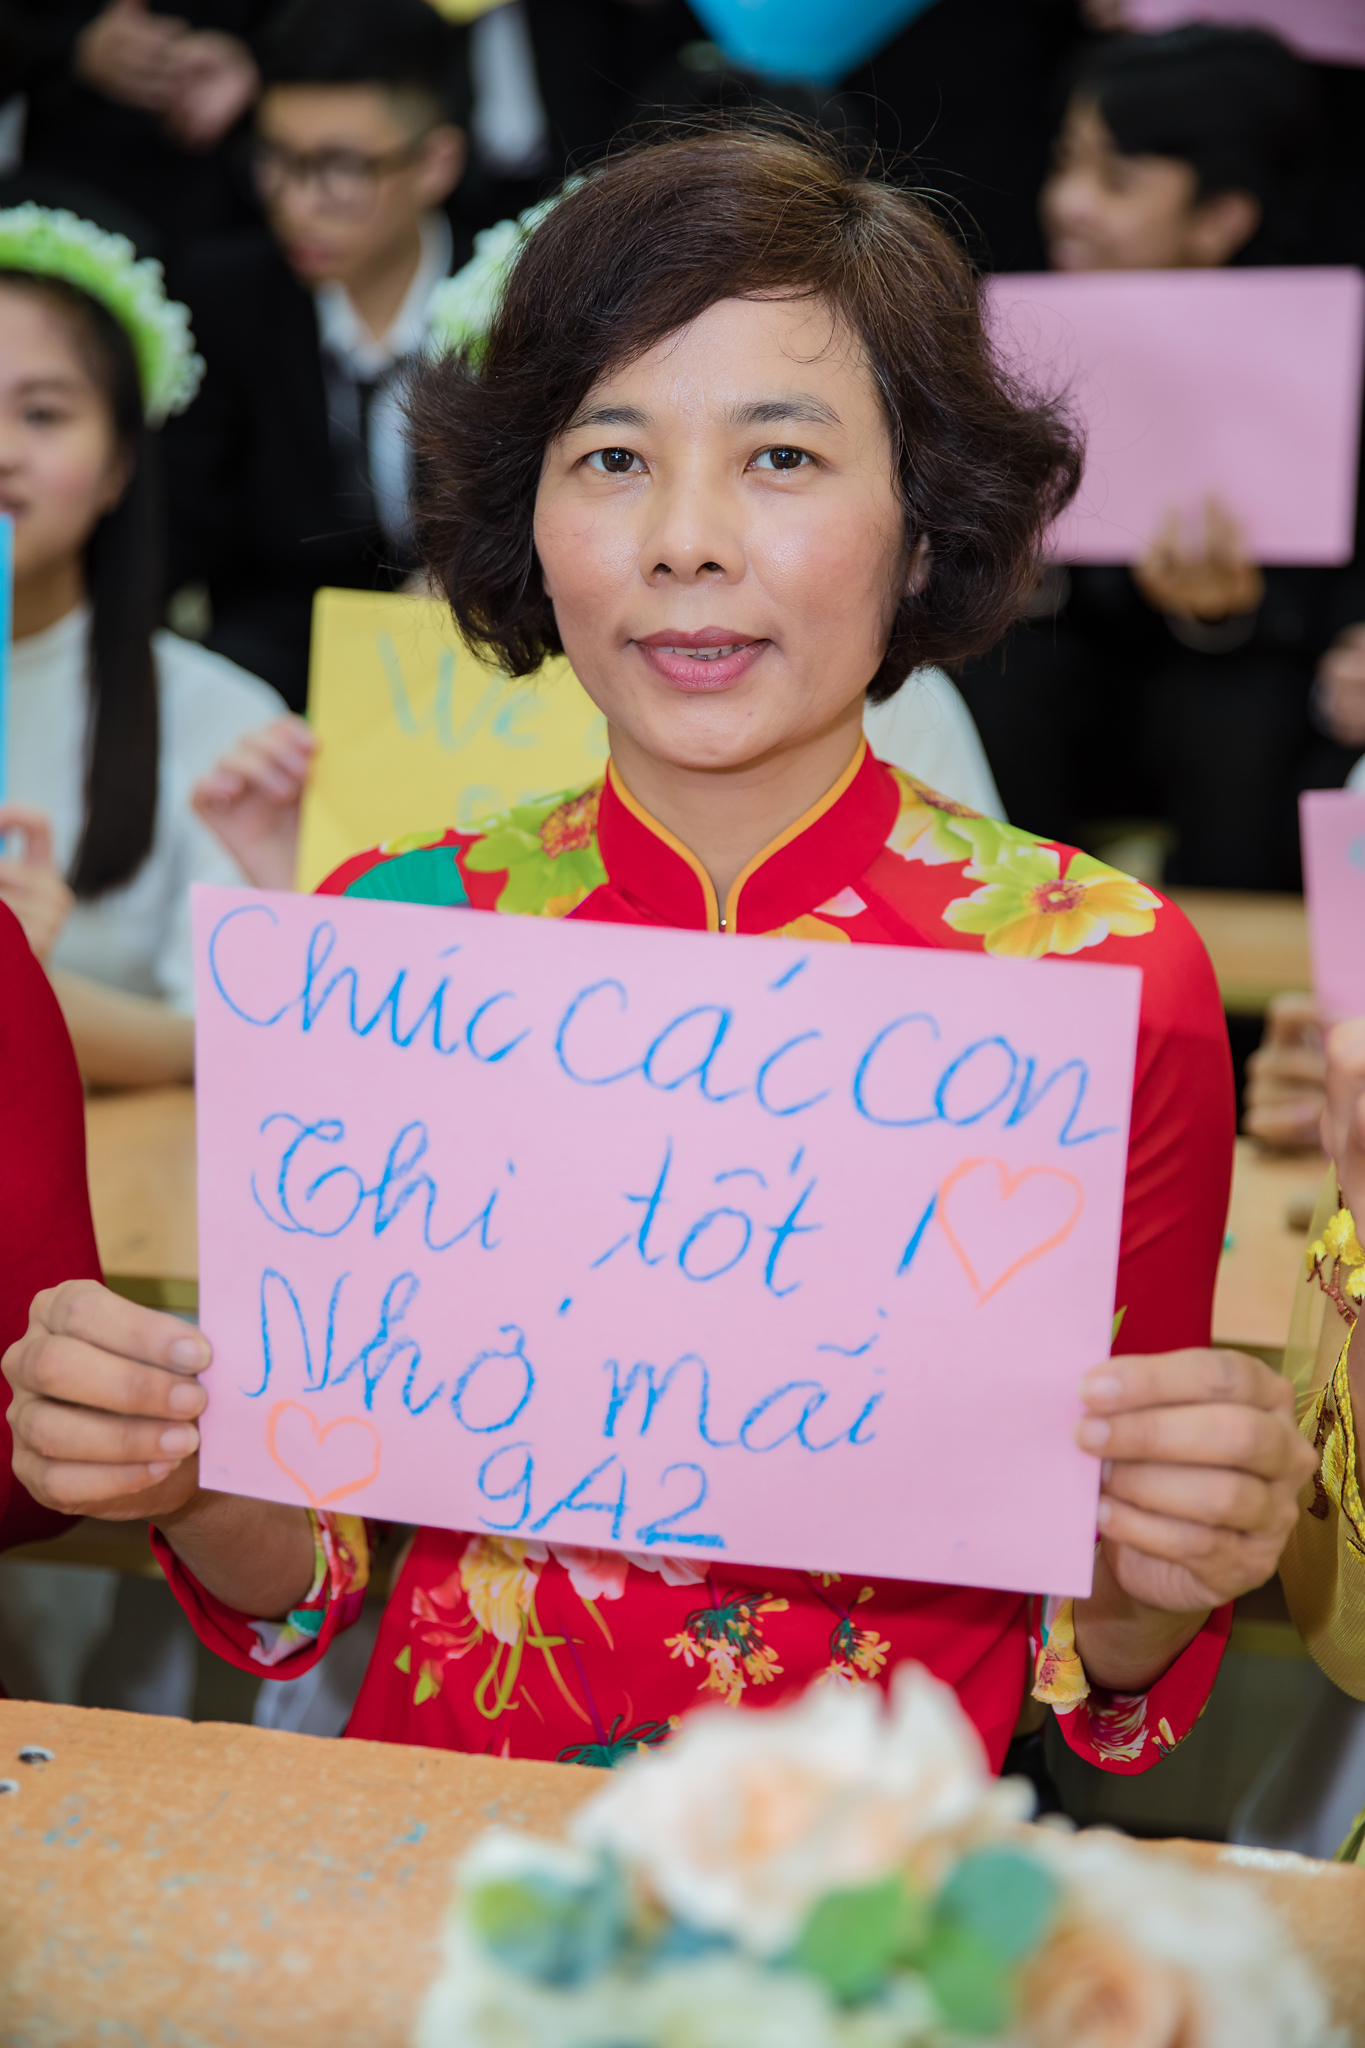 We
Chúc các con
Thi tốt !
Nhớ mãi
9A2